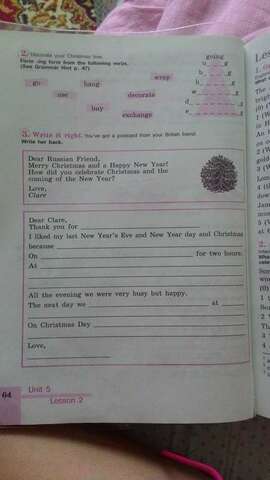 2. Decorate your Christmas tree.
Form -ing form from the following verbs.
(See Grammar Hint p. 47)
go hang wrap
use decorate
buy exchange
going
u__g
b__g
h__g
w__g
d__g
e__g
3. Write it right. You've got a postcard from your British friend.
Write her back.
Dear Russian Friend,
Merry Christmas and a Happy New Year!
How did you celebrate Christmas and the
coming of the New Year?
Love,
Clare
Dear Clare,
Thank you for
I liked my last New Year's Eve and New Year day and Christmas
because
On for two hours.
At
All the evening we were very busy but happy.
The next day we at
On Christmas Day
Love,
64
Unit 5
Lesson 2